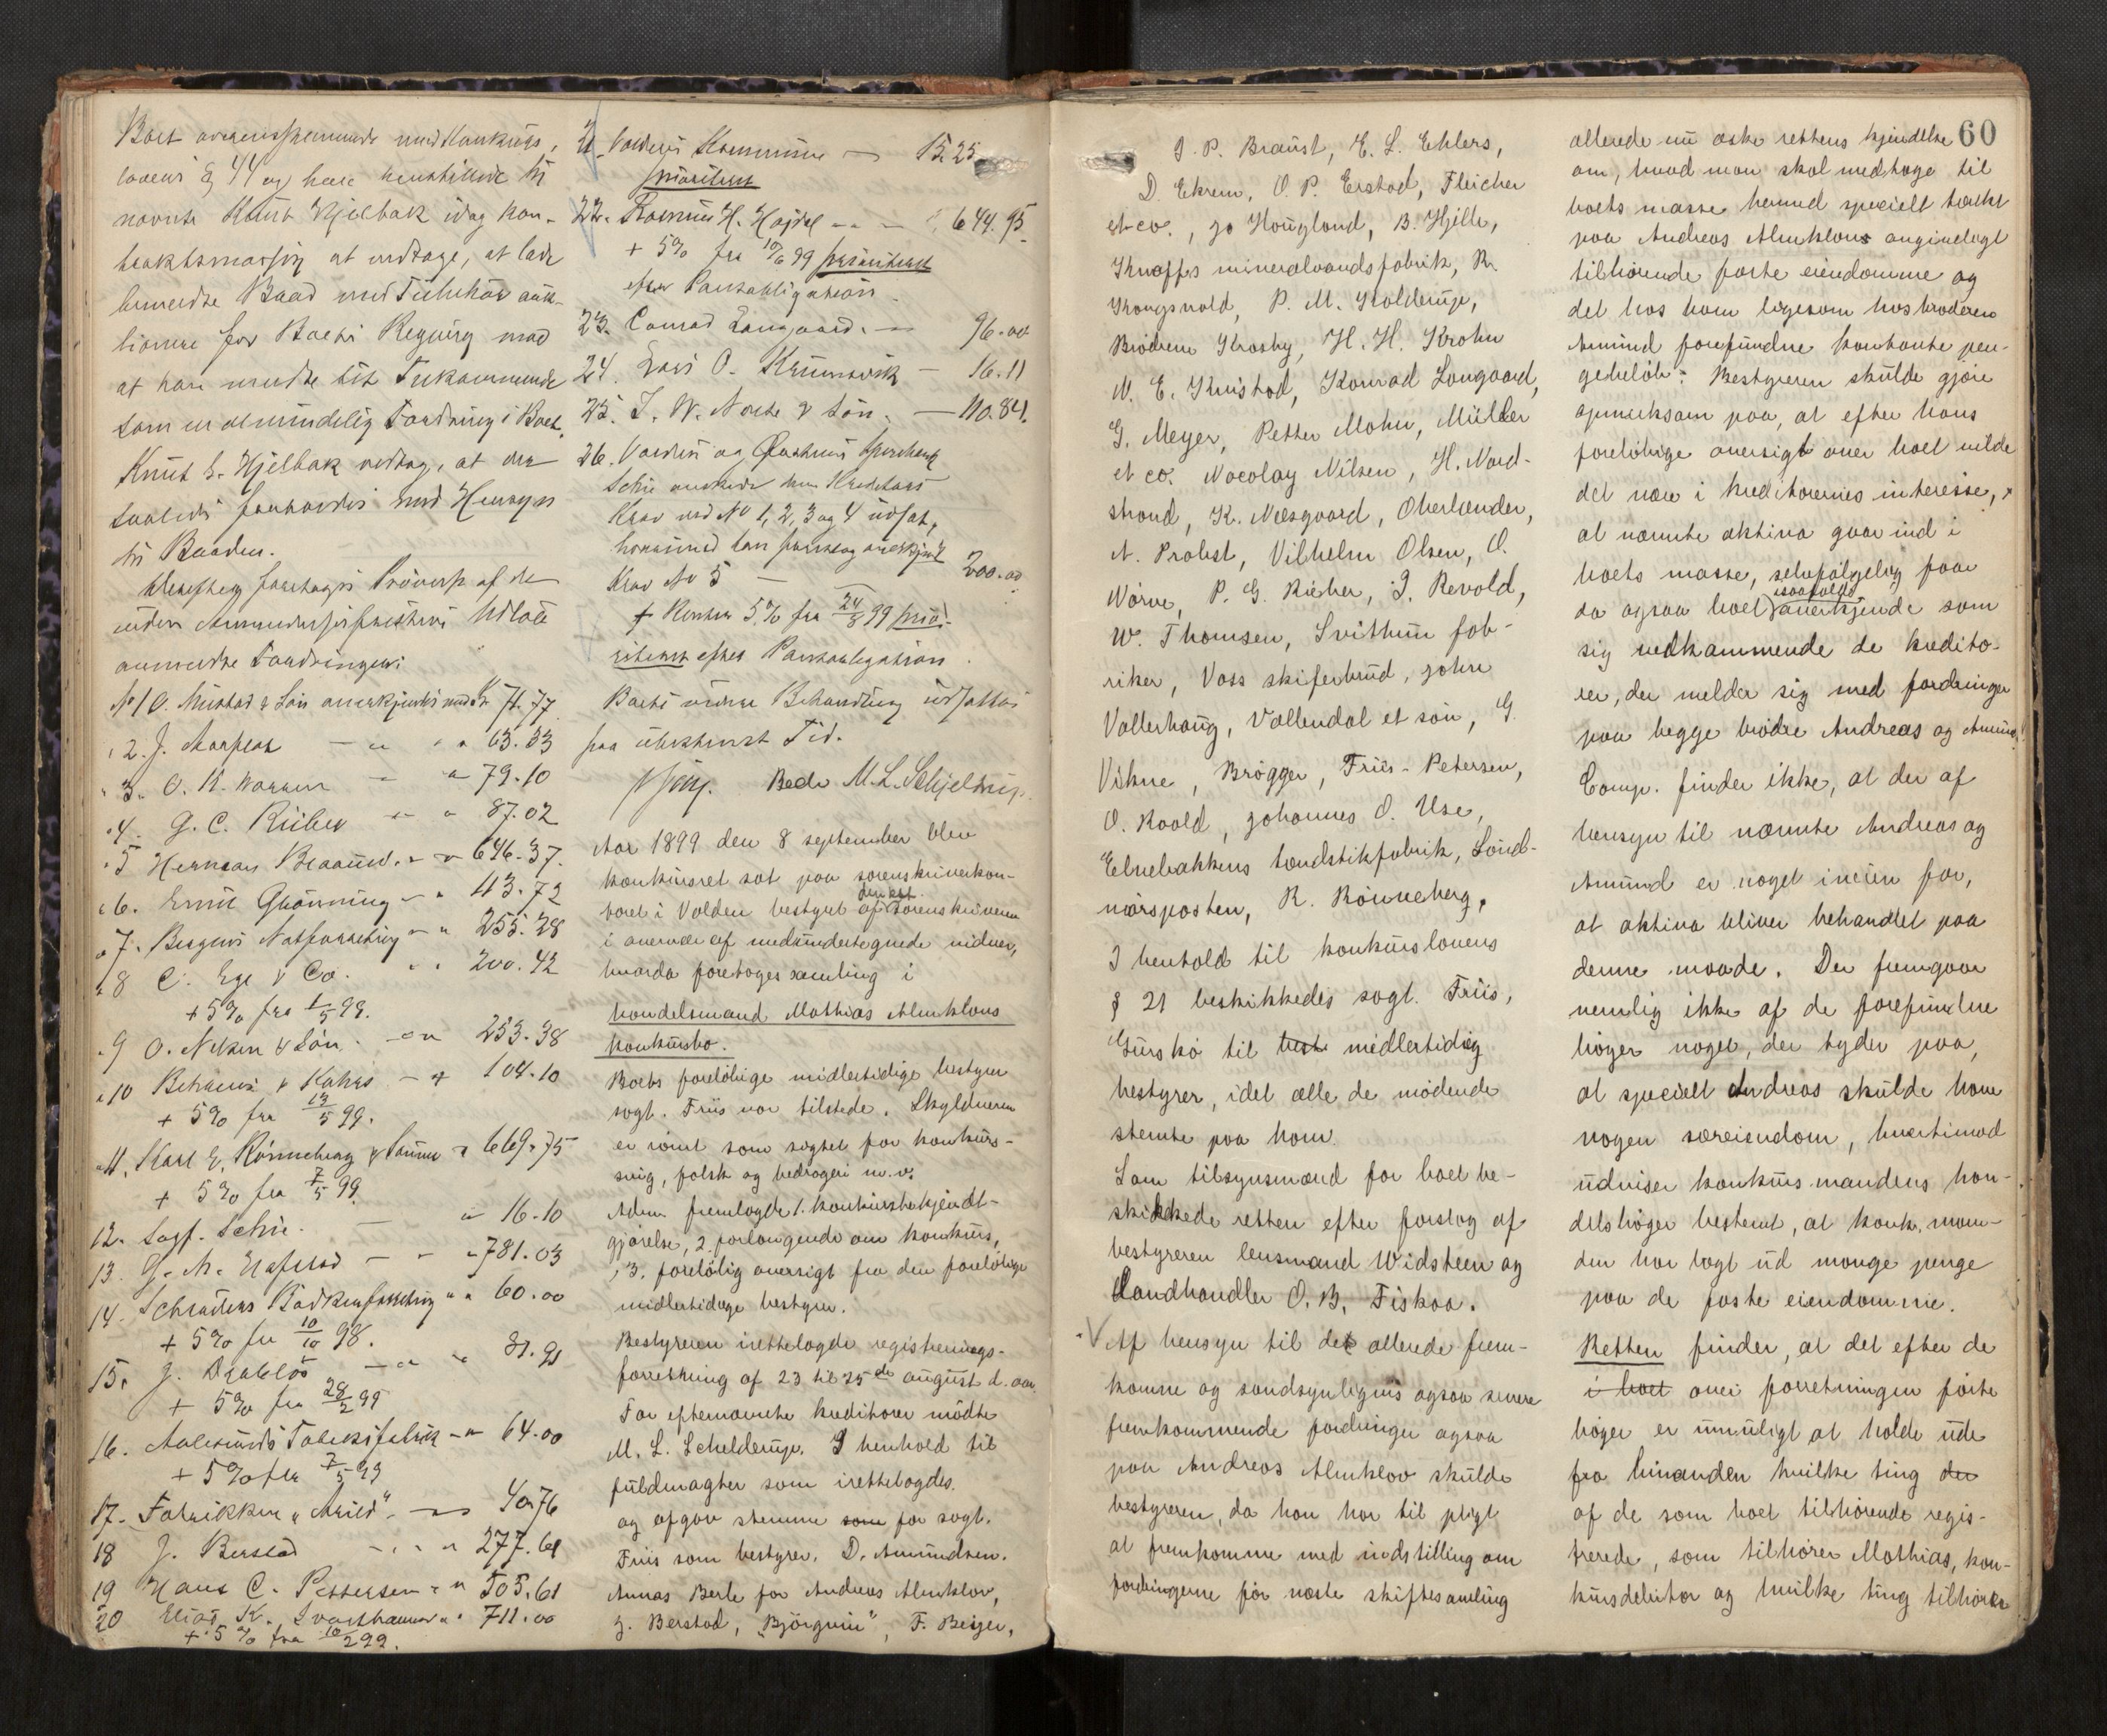 Boet overensstemmende med Konkurs,
lovens § 44 og hans henstillede til
nævnte Knut Hjelbak idag kon-
traktsmæssig at modtage, at lade
anmeldte Baad med Tilbehør auk-
tionere for Boets Regning mod
at han meldte sit Tilkommende
som en almindelig Fordring i Boet.
Knut L. Hjelbak vedtog, at der
saaledes forholdes med Hensyn
til Baaden.
Derefter foretoges Prøvelse af de
inden Anmeldelsesfristens Udløb
anmeldte Fordringer:
No 1 O. Mustad & Søn anerkjendtes med Kr 71.77
" 2. J. 63.33
" 3. O. A. 79.10
" 4. G. C. Rieber 87.02
" 5 Herman Braaum 646.37.
" 6. Ernst Grönning 43.72
" 7. Bergens Notforretning 255.28
" 8 C. Ege & Co. 200.42
+ 5% fra 1/5 99.
" 9 O. Nelson & Søn 253.38
" 10 Behrens & Kahrs 104.10
+ 5% fra 13/5 99.
" 11. Karl E. Rönneberg & Sønner 669.75
+ 5% fra 7/5 99
12. Sagf. Schie. 16.10
13. G. M. 781.03
14. Schrøders Bødkerforretning 60.00
+ 5% fra 10/10 98.
15. J. Dräblös 81.91
+ 5% fra 28/2 99
16. Aalesunds Tobaksfabrik 64.00
+ 5% fra 7/5 99
17. Fabrikken "Arild" 40.76
18 J. Berstad 277.61
19 Hans C. Pettersen 505.61
20 Elias K. Svarthammer 711.00
+ 5% fra 10/2 99.
21. Voldens Kommune — 15.25
prioritert
22. Rasmus H. Højdal 644.95
+ 5% fra 10/6 99 prioritert
efter Pantobligation
23. Conrad Langaard. — 96.00
24. Lars O. Krumsvik — 16.11
25. I. W. Nolte & Søn. — 110.84.
26. Voldens og Ørstens Sparebank
Schie ønskede hun Kreditors
Krav ved No 1, 2, 3 og 4 udsat,
hvorimod han foreslog anerkjendt
Krav No 5 — 200.00
+ Renter 5% fra 24/8 99 prio-
ritert efter Pantobligation.
Boets videre Behandling udsattes
paa ubestemt Tid.
Bech M. L. Schjelderup.
Aar 1899 den 8 september blev
konkursret sat paa sorenskriverkon-
toret i Volden bestyret af den est. sorenskriveren
i overvær af medundertegnede vidner,
hvorda foretoges samling i
handelsmand Mathias Almklovs
konkursbo.
Boets foreløbige midlertidige bestyrer
sagf. Friis var tilstede. Skyldneren
er rømt som sigtet for konkurs-
svig, falsk og bedrageri m. v.
Adm. fremlagde 1. konkursbekjendt-
gjørelse, 2. forlangende om konkurs,
, 3. foreløbig oversigt fra den foreløbige
midlertidige bestyrer.
Bestyreren irettelagde registrerings-
forretning af 23 til 25de august d. aar
For efternævnte kreditorer mødte
M. L. Schelderup. I henhold til
fuldmagter som irettelagdes.
og afgav stemme som for sagf.
Friis som bestyrer. D. Amundsen.
Annas Berle for Andreas Almklov,
J. Berstad, "Björgvin", F. Beijer,
J. P. Braust, E. L. Ehlers,
D. Ekrem, O. P. Erstad, Fleicher
et co., Jo Hougland, B. Hjelle,
Knaffs mineralvandsfabrik, R.
Kongsvold, P. M. Kolderup,
Brødrene Krosby, H. H. Krohn
N. E. Kvistad, Konrad Langaard,
G. Meyer, Petter Mohn, Müller
et co. Nocolay Nilsen, H. Nord-
strand, K. Næsgaard, Oberlænder,
N. Probst, Vilhelm Olsen, O.
Nörve, P. G. Rieber, J. Revold,
W. Thomsen, Svithun fab-
riker, Voss skiferbrud, Johre
Vallerhaug, Vallendal et sön, G.
Vikne, Brögger, Friis-Petersen,
O. Roald, Johannes O. Use,
Elnebakkens tændstikfabrik, Sönd-
mörsposten, R. Rönneberg,
I henhold til konkurslovens
§ 21 beskikkedes sagf. Friis,
Gurskö til best. midlertidig
bestyrer, idet alle de mödende
stemte paa ham.
Som tilsynsmænd for boet be-
skikkede retten efter forslag af
bestyreren lensmand Widsteen og
landhandler O. B. Fiskaa.
Af hensyn til det allerede frem-
komne og sandsynligvis ogsaa senere
fremkommende fordringer ogsaa
paa Andreas Almklov skulde
bestyreren, da han har til pligt
at fremkomme med indstilling om
fordringerne før næste skiftesamling
60
allerede nu æske rettens kjendelse
om, hvad man skal medtage til
boets masse herved specielt tænkt
paa Andreas Almklovs angivelagt
tilhørende faste eiendomme og
det hos ham ligesom hos broderen
Amund forefundne kontante pen-
gebeløb: Bestyreren skulde gjøre
opmerksom paa, at efter hans
foreløbige oversigt over boet vilde
det være i kreditorernes interesse,
at nævnte aktiva gaar ind i
boets masse, selvfølgelig faar
da ogsaa boet isaafald anerkjende som
sig vedkommende de kredito-
rer, der melder sig med fordringer
paa begge brødre Andreas og Amund.
Comp. finder ikke, at der af
hensyn til nævnte Andreas og
Amund er noget iveien for,
at aktiva bliver behandlet paa
denne maade. Der fremgaar
nemlig ikke af de forefundne
bøger noget, der tyder paa,
at specielt Andreas skulde have
nogen særeiendom, hvertimod
udviser konkursmandens han-
delsbøger bestemt, at konk. man-
den har lagt ud mange penge
paa de faste eiendomme.
Retten finder, at det efter de
i boet over forretningen førte
bøger er umuligt at holde ude
fra hinanden hvilke ting der
af de som boet tilhørende regis-
trerede, som tilhører Mathias, kon-
kursdebitor og hvilke ting tilhører